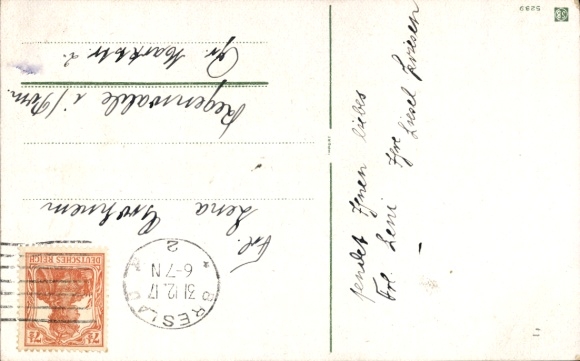 sendet Ihnen liebes
Frl. Leni Ihre Liesel Friesen
Frl.
Lena Grohnem
Regenwalde i/Pom.
Gr. Markstr. 2.
BRESLAU
31.12.17
6-7 N
2
DEUTSCHES REICH
7½ 7½
5299